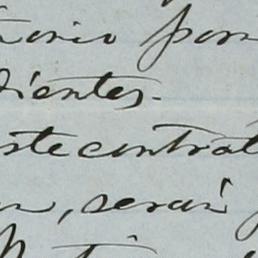 torio por
dientes.
ste contrat
n, serán